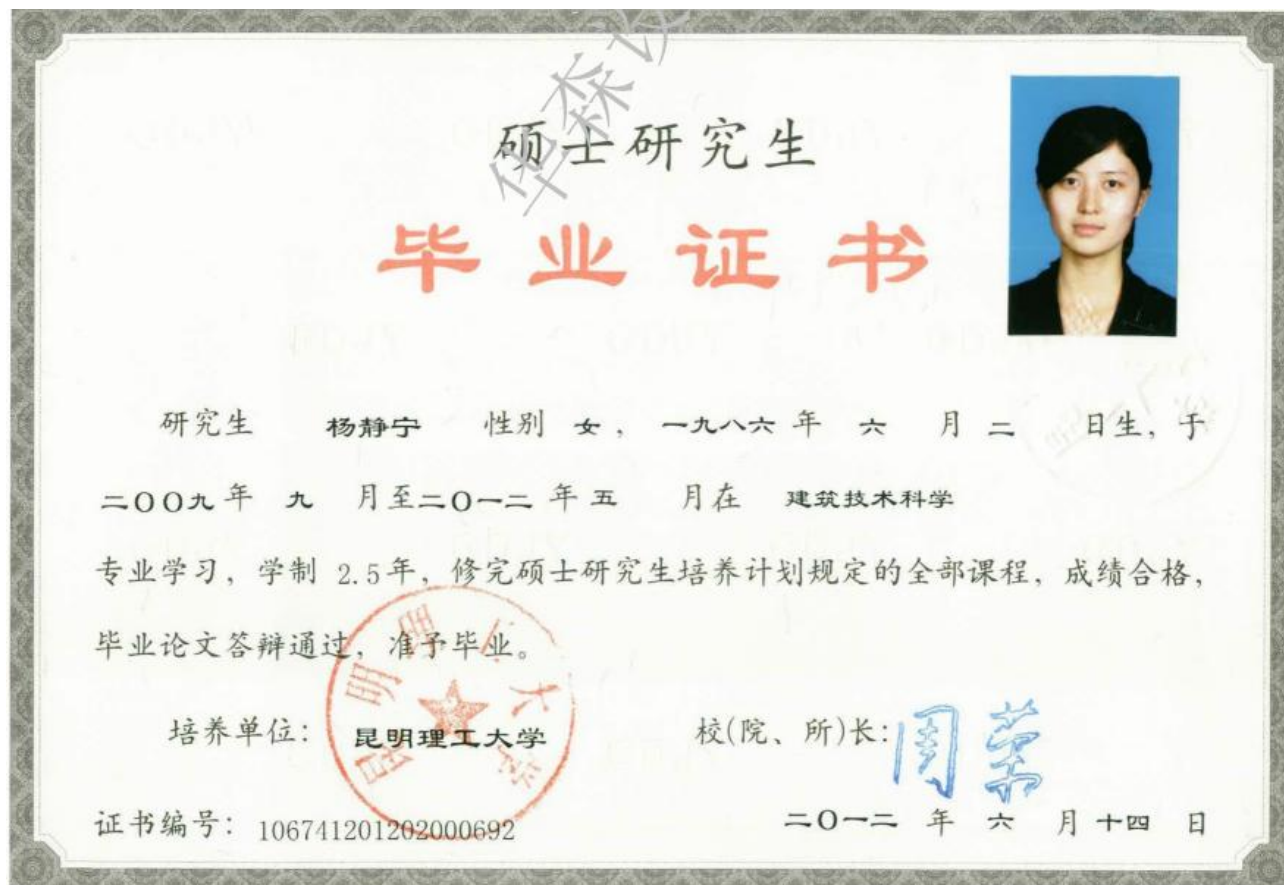 华森设
硕士研究生
毕业证书
研究生 杨静宁 性别 女, 一九八六 年 六 月 二 日生, 于
二〇〇九 年 九 月至二〇一二 年 五 月在 建筑技术科学
专业学习, 学制 2.5年, 修完硕士研究生培养计划规定的全部课程, 成绩合格,
毕业论文答辩通过, 准予毕业。
昆明理工大学
培养单位: 昆明理工大学 校(院、所)长: 周荣
证书编号: 106741201202000692 二〇一二 年 六 月 十四 日